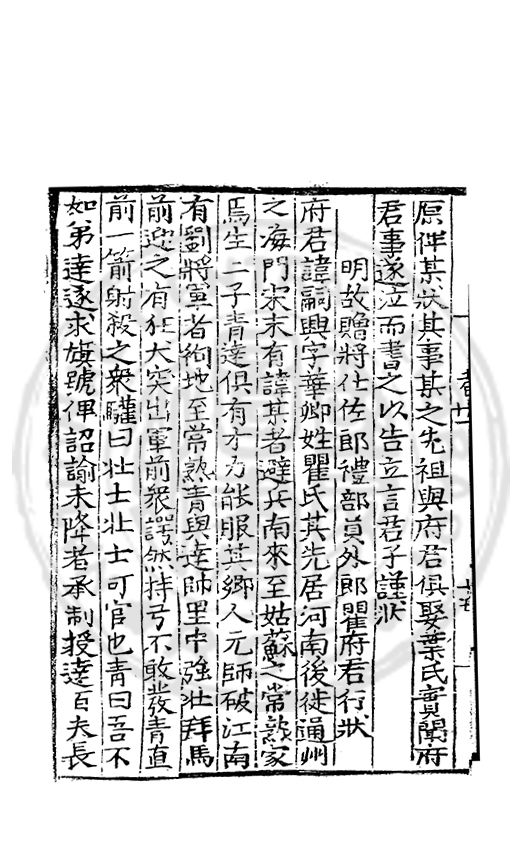 原俾某狀其事某之先祖與府君俱娶葉氏實聞府
君事遂泣而書之以告立言君子謹狀
明故贈將仕佐郎禮部員外郎瞿府君行狀
府君諱嗣興字華卿姓瞿氏其先居河南後徙通州
之海門宋末有諱某者避兵南來至姑蘇之常熟家
焉生二子青達俱有才力能服其鄉人元師破江南
有劉將軍者徇地至常熟青與達帥里中強壯拜馬
前迎之有狂犬突出軍前衆諤然持弓不敢發青直
前一箭射殺之衆驩曰壯士壯士可官也青曰吾不
如弟達遂求旗號俾詔諭未降者承制授達百夫長